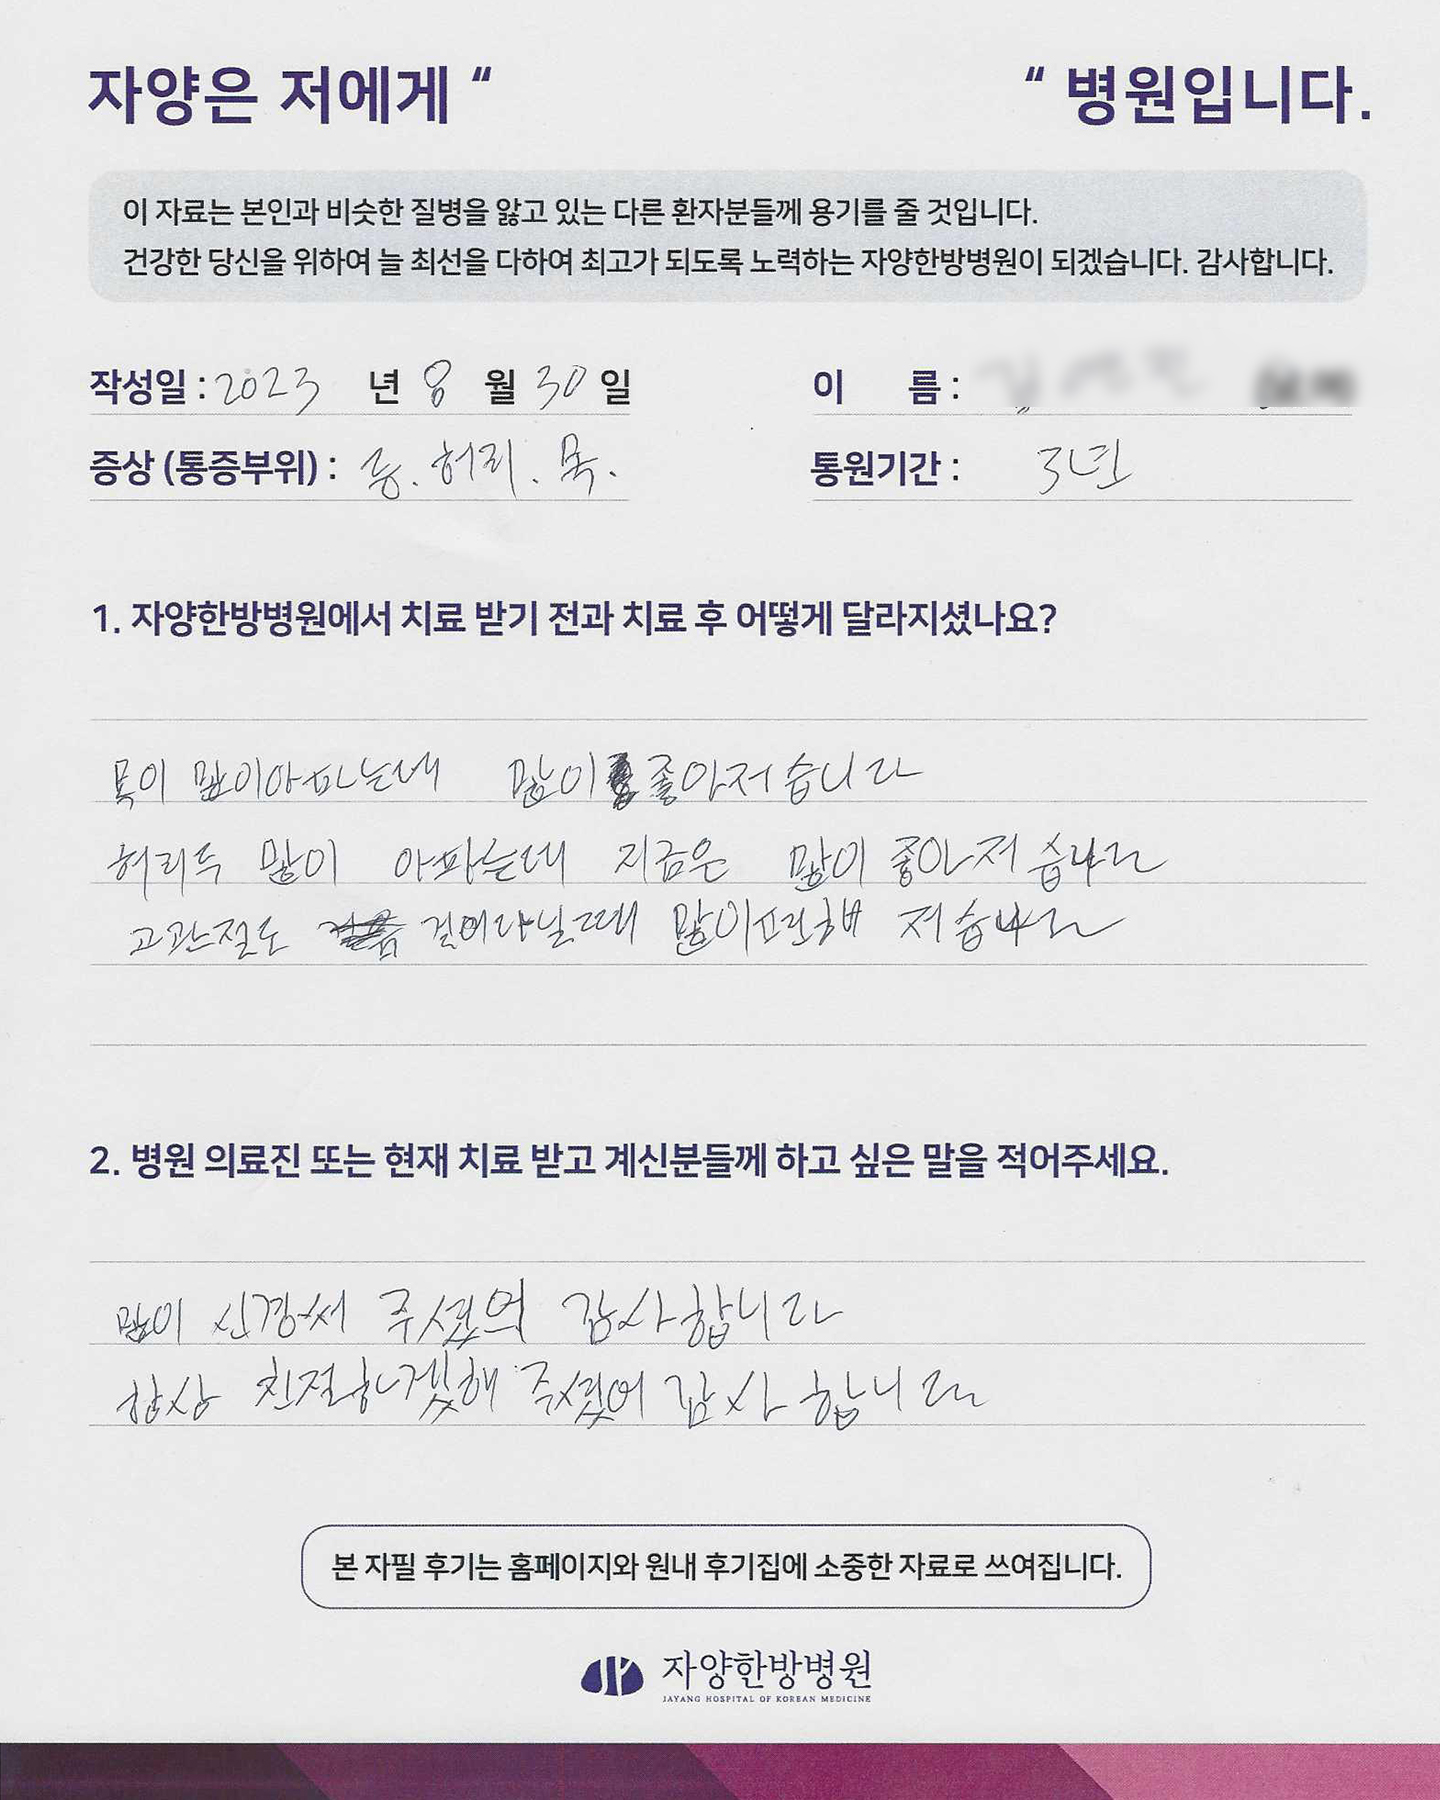 자양은 저에게 “ “ 병원입니다.
이 자료는 본인과 비슷한 질병을 앓고 있는 다른 환자분들께 용기를 줄 것입니다.
건강한 당신을 위하여 늘 최선을 다하여 최고가 되도록 노력하는 자양한방병원이 되겠습니다. 감사합니다.
작성일 : 2023 년 8 월 30 일 이 름 :
증상 (통증부위) : 등. 허리. 목. 통원기간 : 3년
1. 자양한방병원에서 치료 받기 전과 치료 후 어떻게 달라지셨나요?
목이 많이아파는데 많이 좋아저습니다
허리두 많이 아파는데 지금은 많이 좋아저습니다
고관절도 걸어다닐때 많이 저습니다
2. 병원 의료진 또는 현재 치료 받고 계신분들께 하고 싶은 말을 적어주세요.
많이 신경써 주셨어 감사합니다
항상 주셨어 감사합니다
본 자필 후기는 홈페이지와 원내 후기집에 소중한 자료로 쓰여집니다.
자양한방병원
JAYANG HOSPITAL OF KOREAN MEDICINE